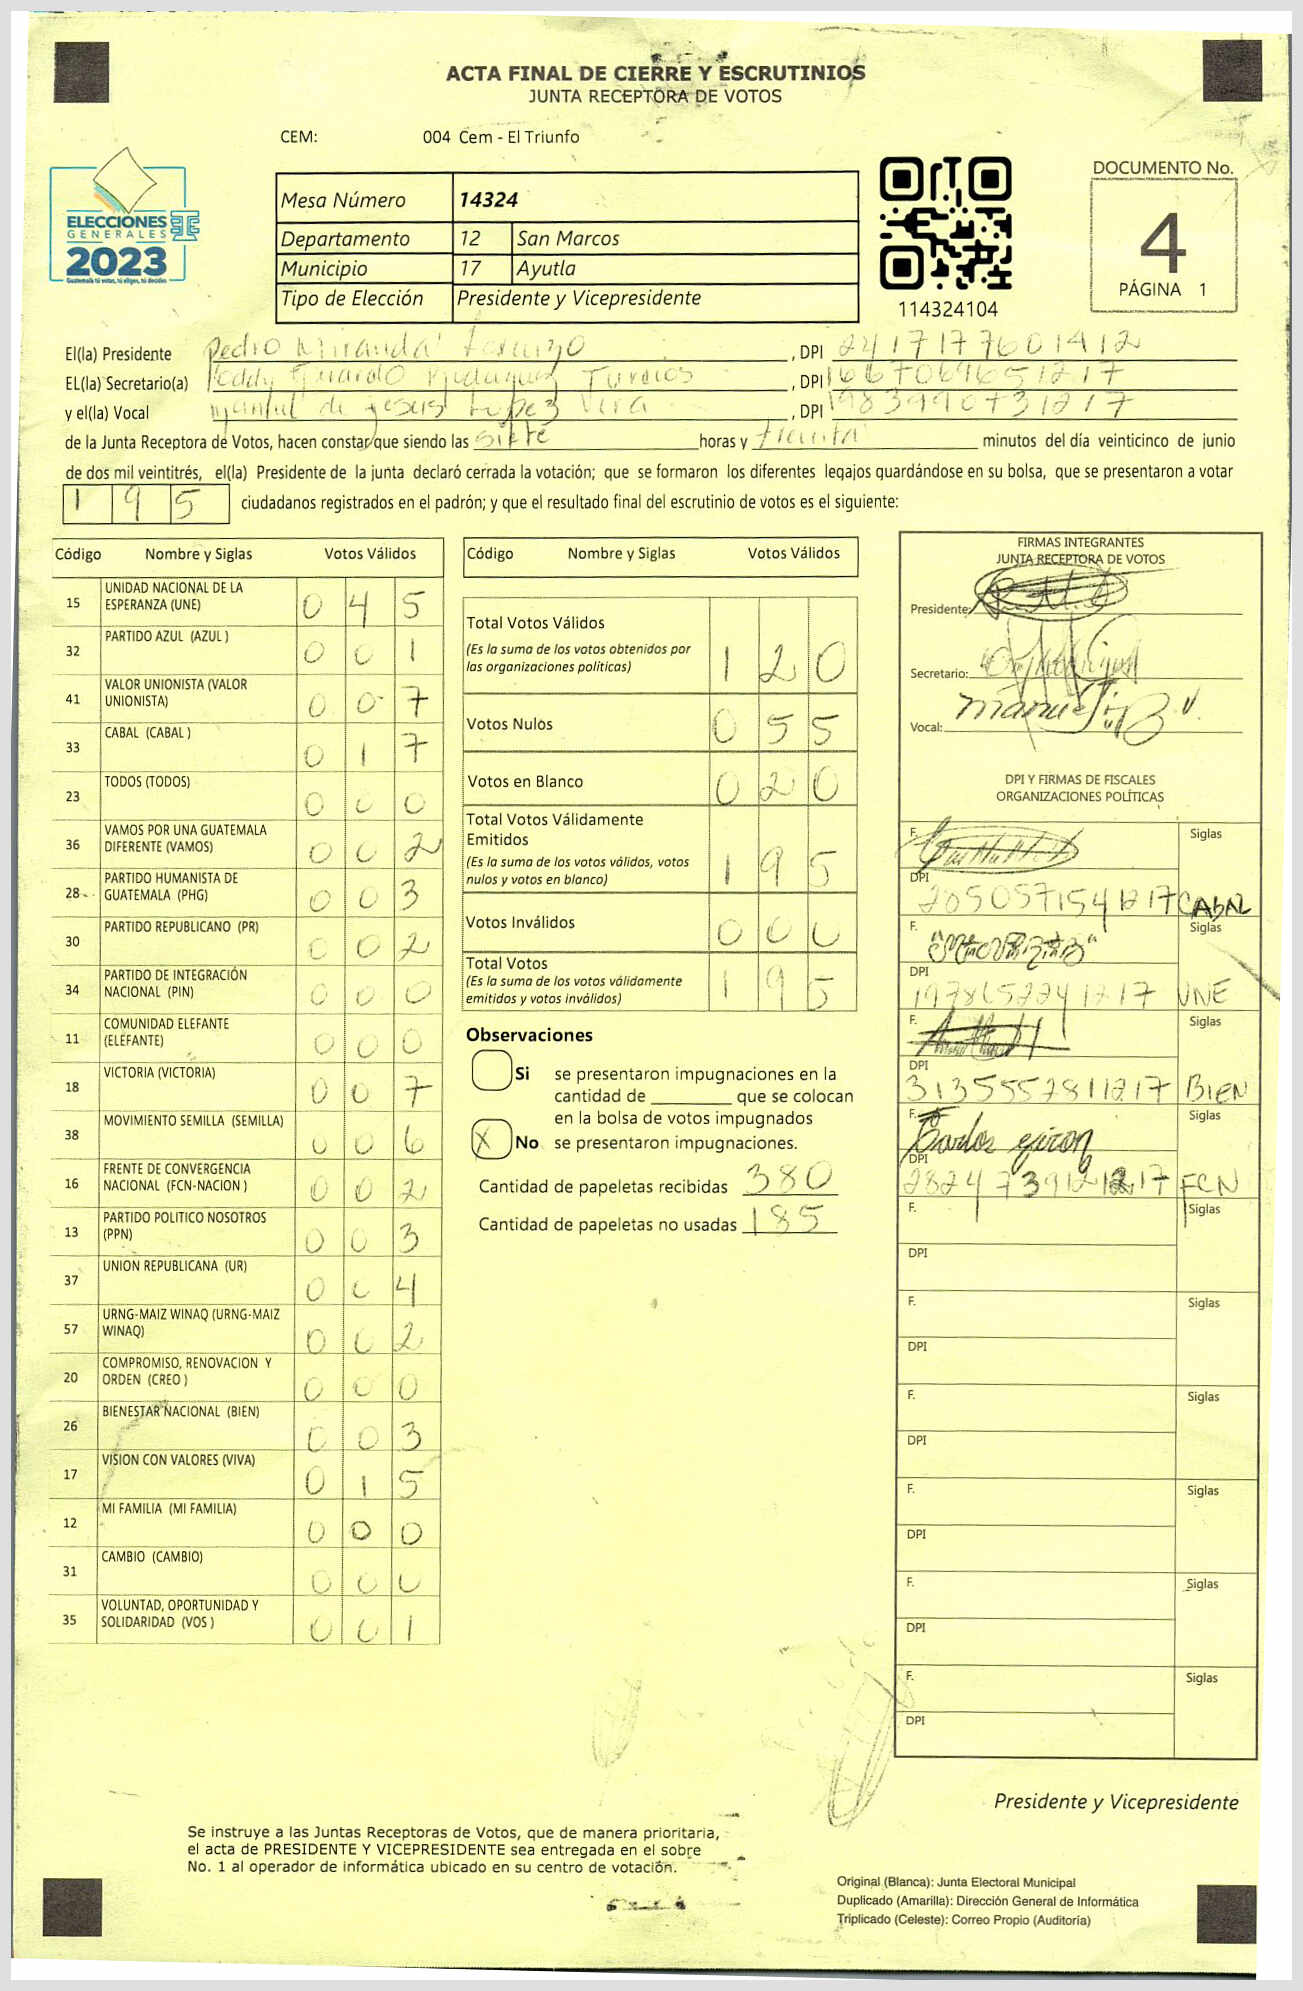 ACTA FINAL DE CIERRE Y ESCRUTINIOS
JUNTA RECEPTORA DE VOTOS
CEM: 004 Cem - El Triunfo
ELECCIONES
GENERALES
2023
Guatemala tú votas, tú eliges, tú decides
Mesa Número 14324
Departamento 12 San Marcos
Municipio 17 Ayutla
Tipo de Elección Presidente y Vicepresidente
114324104
DOCUMENTO No.
4
PÁGINA 1
El(la) Presidente Pedro Miranda , DPI 2417177601412
EL(la) Secretario(a) Turcios , DPI 1667069651217
y el(la) Vocal Manuel de Jesus Lopez Vera , DPI 1983990731217
de la Junta Receptora de Votos, hacen constar que siendo las siete horas y treinta minutos del día veinticinco de junio
de dos mil veintitrés, el(la) Presidente de la junta declaró cerrada la votación; que se formaron los diferentes legajos guardándose en su bolsa, que se presentaron a votar
195 ciudadanos registrados en el padrón; y que el resultado final del escrutinio de votos es el siguiente:
Código Nombre y Siglas Votos Válidos
15 UNIDAD NACIONAL DE LA
ESPERANZA (UNE) 0 4 5
32 PARTIDO AZUL (AZUL ) 0 0 1
41 VALOR UNIONISTA (VALOR
UNIONISTA) 0 0 7
33 CABAL (CABAL ) 0 1 7
23 TODOS (TODOS) 0 0 0
36 VAMOS POR UNA GUATEMALA
DIFERENTE (VAMOS) 0 0 2
28 PARTIDO HUMANISTA DE
GUATEMALA (PHG) 0 0 3
30 PARTIDO REPUBLICANO (PR) 0 0 2
34 PARTIDO DE INTEGRACIÓN
NACIONAL (PIN) 0 0 0
11 COMUNIDAD ELEFANTE
(ELEFANTE) 0 0 0
18 VICTORIA (VICTORIA) 0 0 7
38 MOVIMIENTO SEMILLA (SEMILLA) 0 0 6
16 FRENTE DE CONVERGENCIA
NACIONAL (FCN-NACION ) 0 0 2
13 PARTIDO POLITICO NOSOTROS
(PPN) 0 0 3
37 UNION REPUBLICANA (UR) 0 0 4
57 URNG-MAIZ WINAQ (URNG-MAIZ
WINAQ) 0 0 2
20 COMPROMISO, RENOVACION Y
ORDEN (CREO ) 0 0 0
26 BIENESTAR NACIONAL (BIEN) 0 0 3
17 VISION CON VALORES (VIVA) 0 1 5
12 MI FAMILIA (MI FAMILIA) 0 0 0
31 CAMBIO (CAMBIO) 0 0 0
35 VOLUNTAD, OPORTUNIDAD Y
SOLIDARIDAD (VOS ) 0 0 1
Código Nombre y Siglas Votos Válidos
Total Votos Válidos
(Es la suma de los votos obtenidos por
las organizaciones políticas) 1 2 0
Votos Nulos 0 5 5
Votos en Blanco 0 2 0
Total Votos Válidamente
Emitidos
(Es la suma de los votos válidos, votos
nulos y votos en blanco) 1 9 5
Votos Inválidos 0 0 0
Total Votos
(Es la suma de los votos válidamente
emitidos y votos inválidos) 1 9 5
Observaciones
Si se presentaron impugnaciones en la
cantidad de ________ que se colocan
en la bolsa de votos impugnados
X No se presentaron impugnaciones.
Cantidad de papeletas recibidas 380
Cantidad de papeletas no usadas 185
FIRMAS INTEGRANTES
JUNTA RECEPTORA DE VOTOS
Presidente:
Secretario:
Vocal:
DPI Y FIRMAS DE FISCALES
ORGANIZACIONES POLÍTICAS
F. Siglas
DPI
2050571541217 CABAL
F. Siglas
DPI
1978652241217 UNE
F. Siglas
DPI
3135557811217 BIEN
F. Siglas
DPI
2824739121217 FCN
F. Siglas
DPI
F. Siglas
DPI
F. Siglas
DPI
F. Siglas
DPI
F. Siglas
DPI
F. Siglas
DPI
Presidente y Vicepresidente
Se instruye a las Juntas Receptoras de Votos, que de manera prioritaria,
el acta de PRESIDENTE Y VICEPRESIDENTE sea entregada en el sobre
No. 1 al operador de informática ubicado en su centro de votación.
Original (Blanca): Junta Electoral Municipal
Duplicado (Amarilla): Dirección General de Informática
Triplicado (Celeste): Correo Propio (Auditoría)